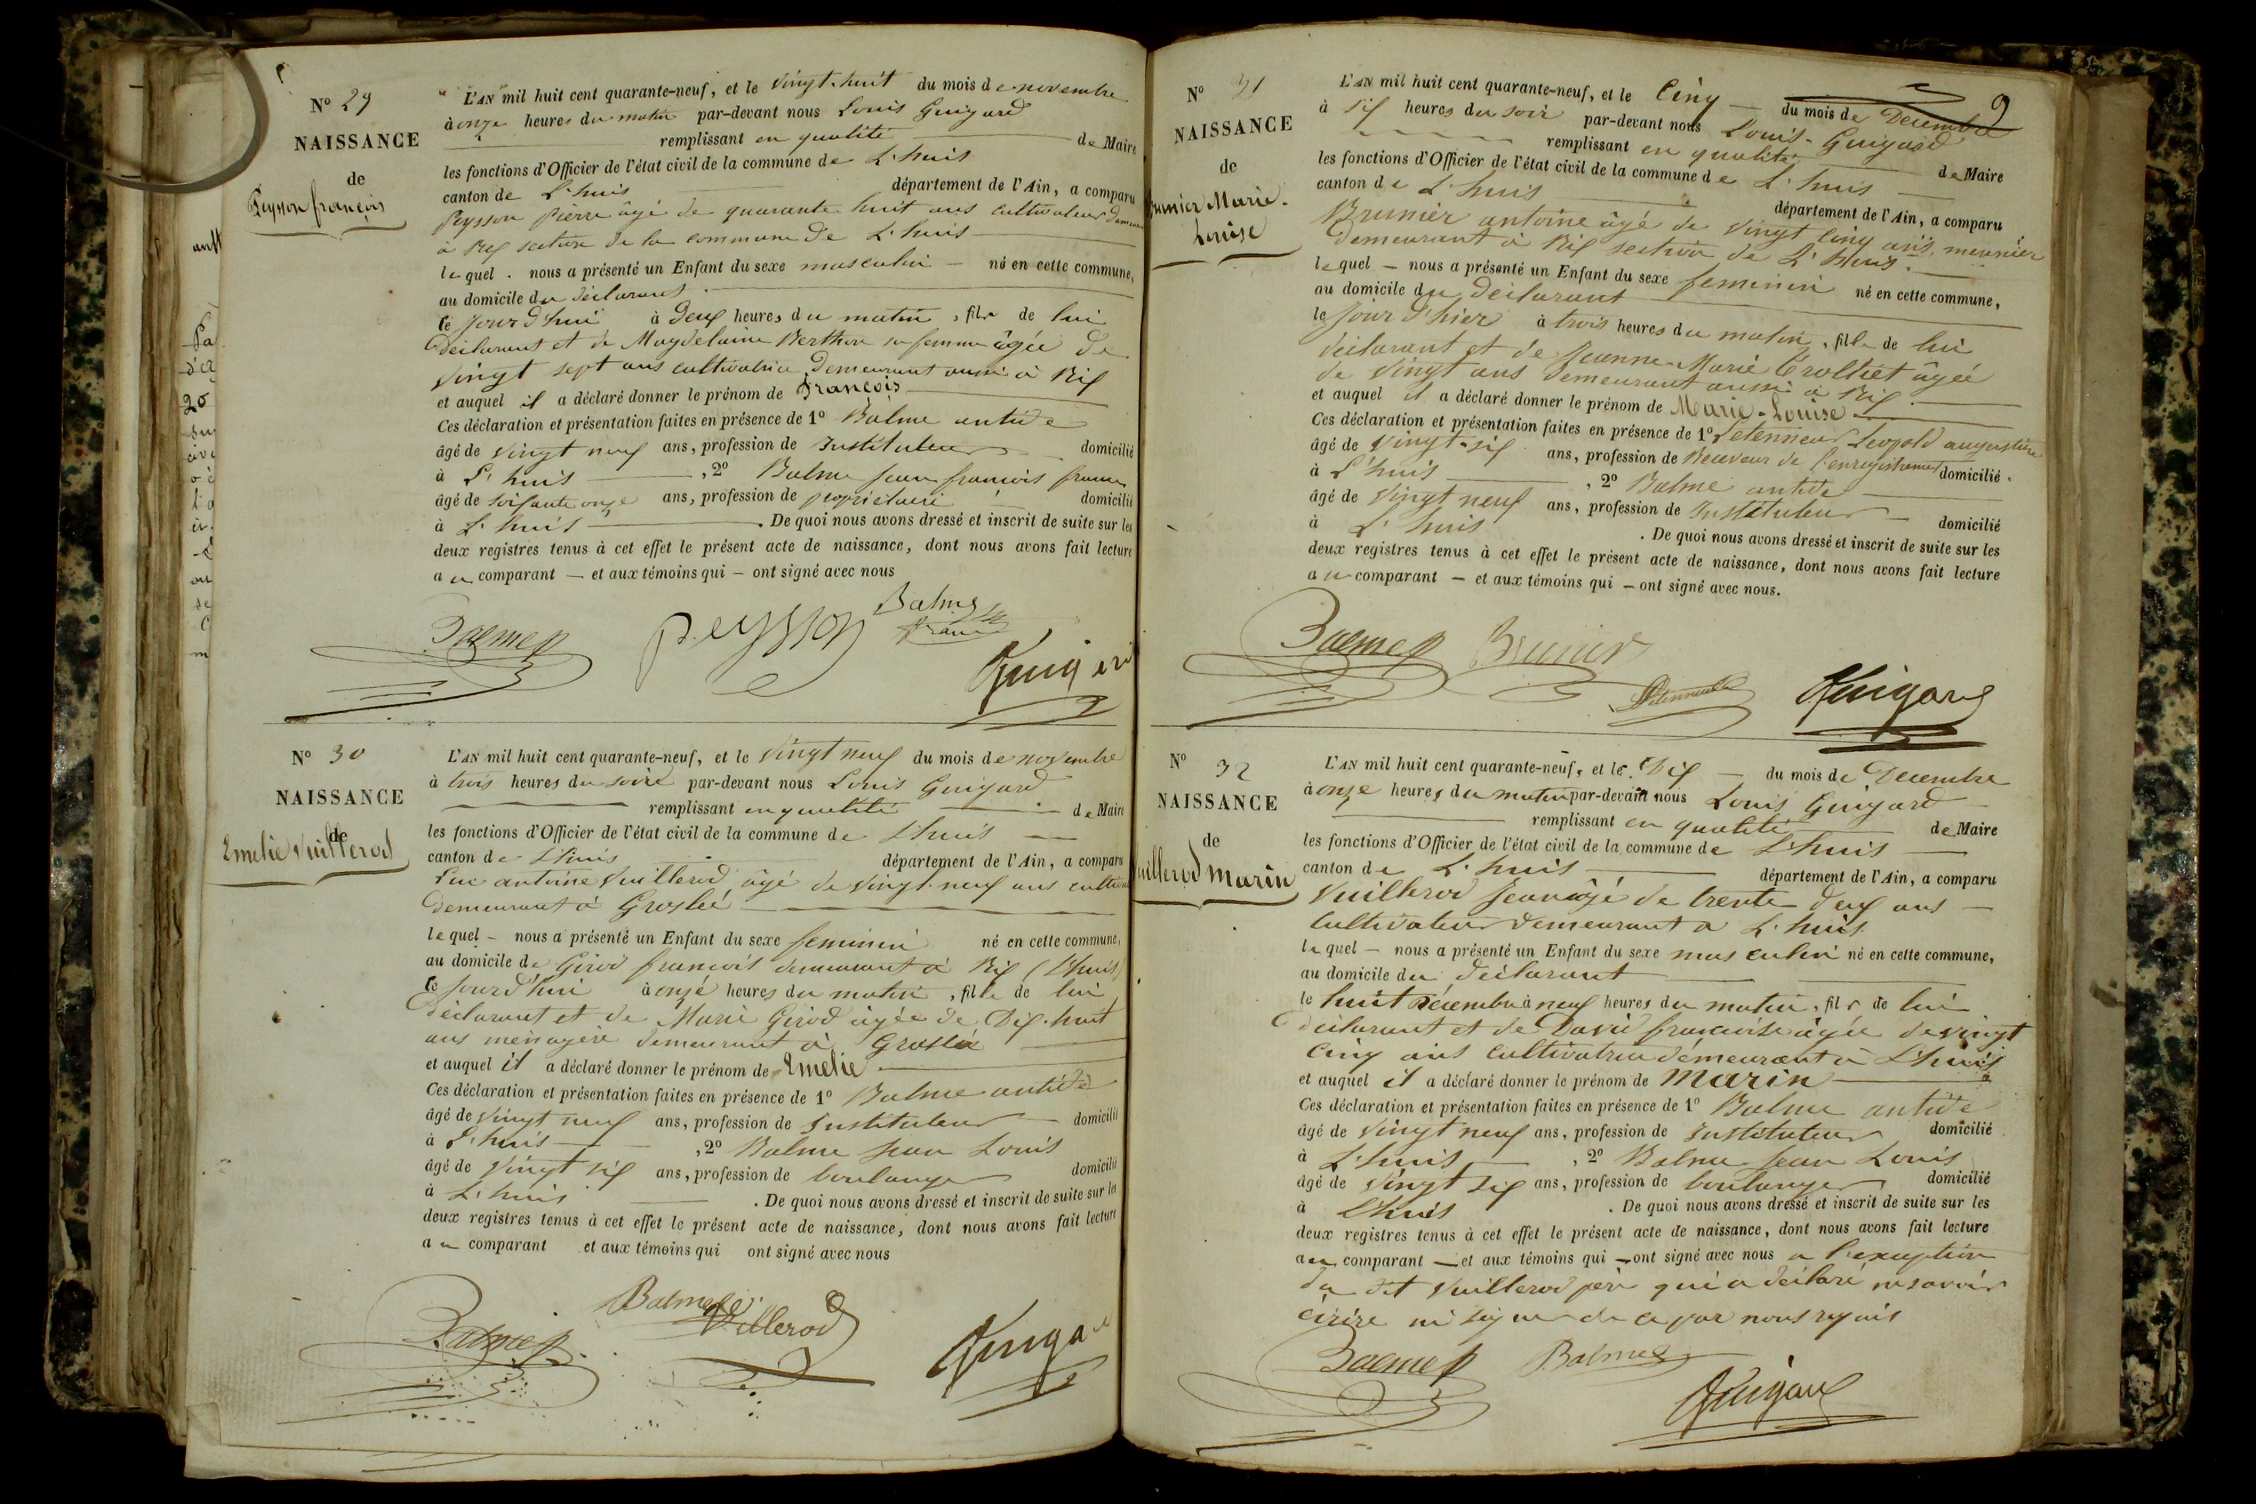 N° 29
NAISSANCE
de
Peysson françois
L'AN mil huit cent quarante-neuf, et le vingt-huit du mois de novembre
à onze heures du matin par-devant nous Louis Guigard
remplissant en qualité de Maire
les fonctions d'Officier de l'état civil de la commune de L'huis
canton de L'huis département de l'Ain, a comparu
Peysson Pierre âgé de quarante huit ans cultivateur
à Rix section de la commune de L'huis
lequel nous a présenté un Enfant du sexe masculin né en cette commune,
au domicile du déclarant
ce jourd'hui à deux heures du matin, fils de lui
déclarant et de Magdelaine Berthon sa femme âgée de
vingt sept ans cultivatrice demeurant aussi à Rix
et auquel il a déclaré donner le prénom de François
Ces déclaration et présentation faites en présence de 1° Balme antide
âgé de vingt neuf ans, profession de Instituteur domicilié
à L'huis, 2° Balme jean françois
âgé de soixante onze ans, profession de propriétaire domicilié
à L'huis. De quoi nous avons dressé et inscrit de suite sur les
deux registres tenus à cet effet le présent acte de naissance, dont nous avons fait lecture
au comparant — et aux témoins qui — ont signé avec nous
Balme
peysson
Balme
N° 30
NAISSANCE
de
Emelie Vuillerod
L'AN mil huit cent quarante-neuf, et le vingt neuf du mois de novembre
à trois heures du soir par-devant nous Louis Guigard
remplissant en qualité de Maire
les fonctions d'Officier de l'état civil de la commune de L'huis
canton de L'huis département de l'Ain, a comparu
Luc antoine Vuillerod âgé de vingt-neuf ans
demeurant à Groslée
lequel — nous a présenté un Enfant du sexe feminin né en cette commune,
au domicile de Girod françois demeurant à Rix (L'huis)
ce jourd'hui à onze heures du matin, fille de lui
déclarant et de Marie Girod âgée de Dix-huit
ans menagère demeurant à Groslée
et auquel il a déclaré donner le prénom de Emelie
Ces déclaration et présentation faites en présence de 1° Balme antide
âgé de vingt neuf ans, profession de Instituteur domicilié
à L'huis, 2° Balme jean Louis
âgé de vingt six ans, profession de boulanger domicilié
à L'huis. De quoi nous avons dressé et inscrit de suite sur les
deux registres tenus à cet effet le présent acte de naissance, dont nous avons fait lecture
au comparant et aux témoins qui ont signé avec nous
Balme
Balme
Villerod
9
N° 31
NAISSANCE
de
Brunier Marie-
Louise
L'AN mil huit cent quarante-neuf, et le Cinq du mois de Decembre
à six heures du soir par-devant nous Louis-Guigard
remplissant en qualité de Maire
les fonctions d'Officier de l'état civil de la commune de L'huis
canton de L'huis département de l'Ain, a comparu
Brunier antoine âgé de vingt Cinq ans, meunier
demeurant à Rix section de L'huis.
lequel — nous a présenté un Enfant du sexe feminin né en cette commune,
au domicile du déclarant
le jour d'hier à trois heures du matin, fille de lui
déclarant et de Jeanne-Marie Trolliet âgée
de vingt ans demeurant aussi à Rix
et auquel il a déclaré donner le prénom de Marie-Louise
Ces déclaration et présentation faites en présence de 1° Leopold
âgé de vingt-six ans, profession de Receveur de l'enregistrement domicilié
à L'huis, 2° Balme antide
âgé de vingt neuf ans, profession de Instituteur domicilié
à L'huis. De quoi nous avons dressé et inscrit de suite sur les
deux registres tenus à cet effet le présent acte de naissance, dont nous avons fait lecture
au comparant — et aux témoins qui — ont signé avec nous.
Balme
Brunier
Guigard
N° 32
NAISSANCE
de
Vuillerod Marin
L'AN mil huit cent quarante-neuf, et le Dix du mois de Decembre
à onze heures du matin par-devant nous Louis Guigard
remplissant en qualité de Maire
les fonctions d'Officier de l'état civil de la commune de L'huis
canton de L'huis département de l'Ain, a comparu
Vuillerod Jean âgé de trente deux ans
cultivateur demeurant à L'huis
lequel — nous a présenté un Enfant du sexe masculin né en cette commune,
au domicile du déclarant
le huit Décembre à neuf heures du matin, fils de lui
déclarant et de David françoise âgée de vingt
cinq ans cultivatrice demeurant à L'huis
et auquel il a déclaré donner le prénom de Marin
Ces déclaration et présentation faites en présence de 1° Balme antide
âgé de vingt neuf ans, profession de Instituteur domicilié
à L'huis, 2° Balme Jean Louis
âgé de vingt six ans, profession de boulanger domicilié
à L'huis. De quoi nous avons dressé et inscrit de suite sur les
deux registres tenus à cet effet le présent acte de naissance, dont nous avons fait lecture
au comparant — et aux témoins qui — ont signé avec nous a l'exception
du dit Vuillerod père qui a déclaré ne savoir
écrire ni signer de ce par nous requis
Balme
Balme
Guigard